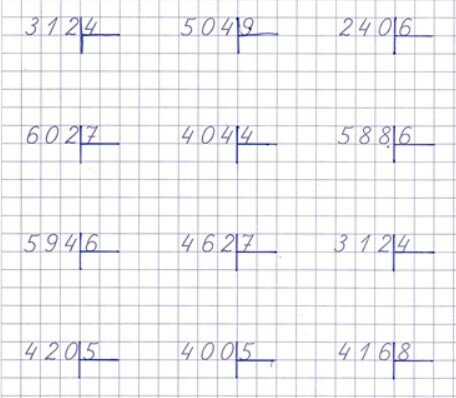 312 4 504 9 240 6
602 7 404 4 588 6
594 6 462 7 312 4
420 5 400 5 416 8